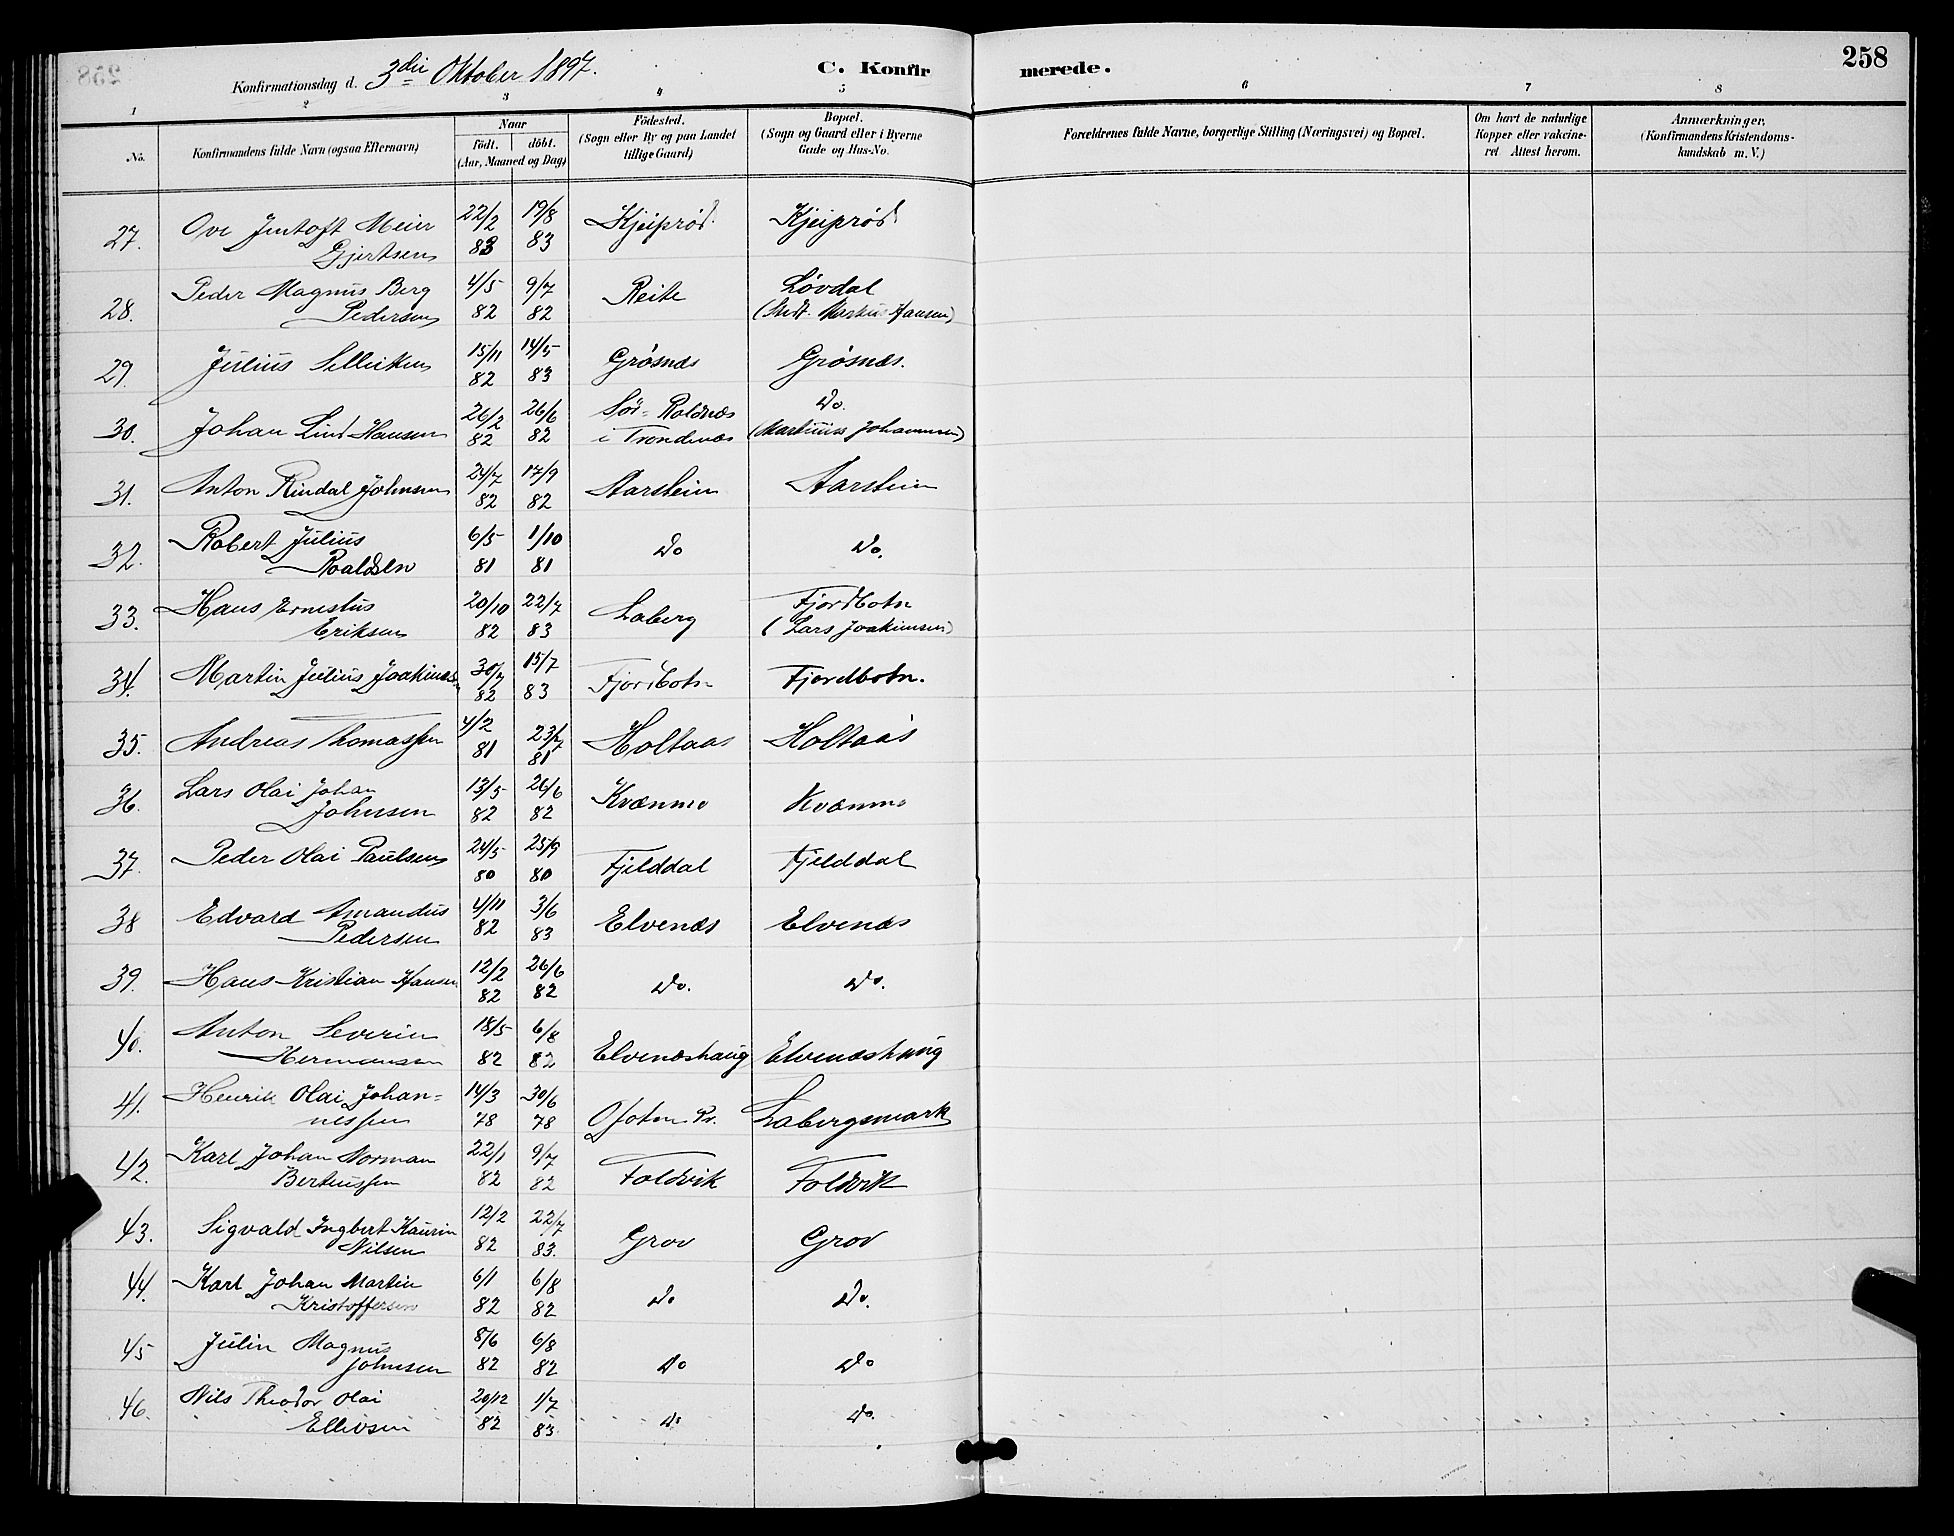 258
Konfirmationsdag d. 3die Oktober 1897.
C. Konfir merede.
1 2 3 4 5 6 7 8
No.
Konfirmandens fulde Navn (ogsaa Efternavn)
Naar
födt. döbt.
(Aar, Maaned og Dag)
Födested.
(Sogn eller By og paa Landet
tillige Gaard)
Bopæl.
(Sogn og Gaard eller i Byerne
Gade og Hus-No.
Forældrenes fulde Navne, borgerlige Stilling (Næringsvei) og Bopæl.
Om havt de naturlige
Kopper eller vakcine-
ret Attest herom.
Anmærkninger,
(Konfirmandens Kristendoms-
kundskab m. V.)
27. Ove Jentoft Meier 22/2 19/8 Kjeiprød Kjeiprød
Gjertsen 83 83
28. Peder Magnus Berg 4/5 9/7 Reite Løvdal
Pedersen 82 82 (Markus Hansen)
29. Julius Selliken 15/11 14/5 Grøsnes Grøsnes.
82 83
30. Johan Lind Hansen 26/2 26/6 Sör-Roldnæs Do.
82 82 i Trondenæs (Martinus Johannsen)
31. Anton Rindal Johnsen 24/7 17/9 Aarstein Aarstein
82 82
32. Robert Julius 6/5 1/10 Do Do.
Roaldsen 81 81
33. Hans Ernestus 20/10 22/7 Laberg Fjordbotn
Eriksen 82 83 (Lars Joakimsen)
34. Martin Julius Joakimsen 30/7 15/7 Fjordbotn Fjordbotn.
82 83
35. Andreas Thomassen 4/2 23/7 Holtaas Holtaas
81 81
36. Lars Olai Johan 13/5 26/6 Kvænmo Kvænmo
Johnsen 82 82
37. Peder Olai Paulsen 24/5 25/9 Fjelddal Fjelddal
80 80
38 Edvard Amandus 4/11 3/6 Elvenæs Elvenæs
Pedersen 82 83
39. Hans Kristian Hansen 12/2 26/6 Do. Do.
82 82
40. Anton Severin 18/5 6/8 Elvenæshaug Elvenæshaug
Hermansen 82 82
41. Henrik Olai Johan- 14/3 30/6 Ofoten Pr. Labergsmark
nessen 78 78
42. Karl Johan Norman 22/1 9/7 Foldvik Foldvik
Berteussen 82 82
43. Sigvald Ingbert Kaurin 12/2 22/7 Grov Grov
Nilsen 82 83.
44. Karl Johan Martin 6/1 6/8 Do Do.
Kristoffersen 82 82
45 Julin Magnus 8/6 6/8 Do Do
Johnsen 82 82
46. Nils Theodor Olai 20/12 1/7 Do Do.
Ellivsen 82 83